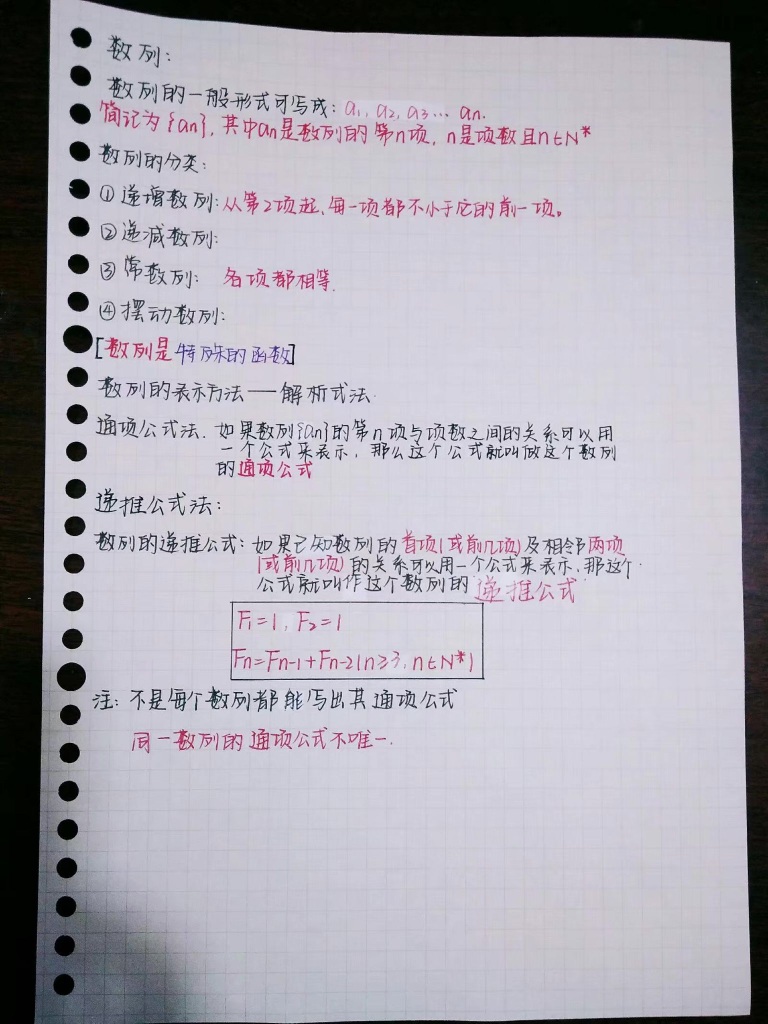 数列:
数列的一般形式可写成: a₁, a₂, a₃… an.
简记为{an}, 其中an是数列的第n项, n是项数且n∈N*
数列的分类:
①递增数列: 从第2项起、每一项都不小于它的前一项。
②递减数列:
③常数列: 各项都相等.
④摆动数列:
[数列是特殊的函数]
数列的表示方法——解析式法.
通项公式法. 如果数列{an}的第n项与项数之间的关系可以用
一个公式来表示, 那么这个公式就叫做这个数列
的通项公式
递推公式法:
数列的递推公式: 如果已知数列的首项(或前几项)及相邻两项
(或前几项)的关系可以用一个公式来表示、那这个
公式就叫作这个数列的递推公式
F₁=1, F₂=1
Fn=Fn-1+Fn-2(n≥3, n∈N*)
注: 不是每个数列都能写出其通项公式
同一数列的通项公式不唯一.